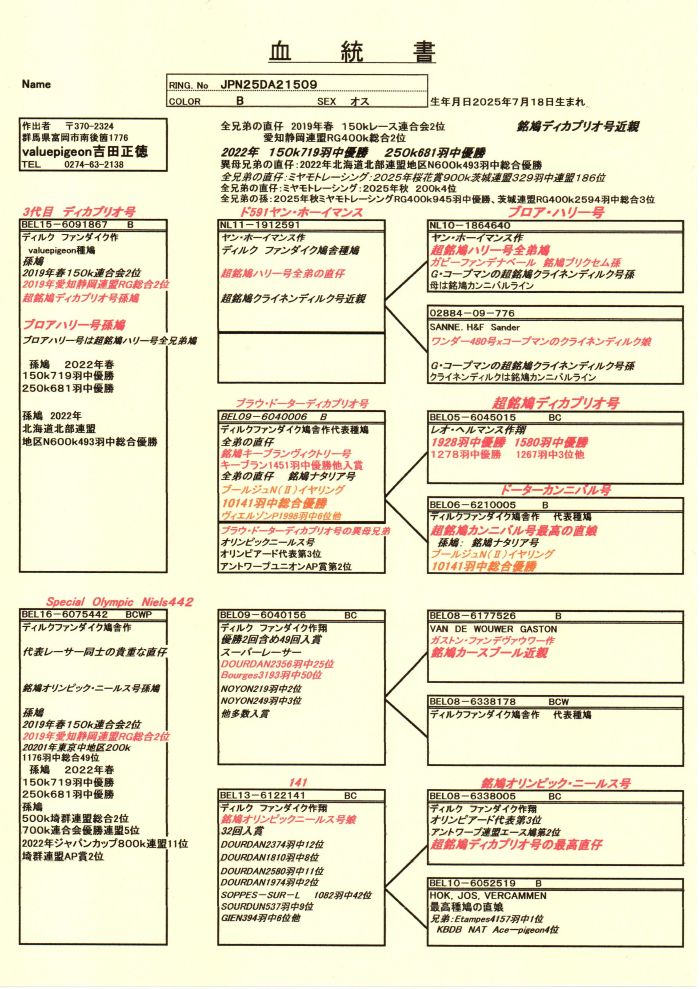 血 統 書
Name
RING. No JPN25DA21509
COLOR B SEX オス
生年月日2025年7月18日生まれ
作出者 〒370-2324
群馬県富岡市南後箇1776
valuepigeon吉田正徳
TEL 0274-63-2138
全兄弟の直仔 2019年春 150kレース連合会2位
愛知静岡連盟RG400k総合2位
銘鳩ディカプリオ号近親
2022年 150k719羽中優勝 250k681羽中優勝
異母兄弟の直仔:2022年北海道北部連盟地区N600k493羽中総合優勝
全兄弟の直仔:ミヤモトレーシング:2025年桜花賞900k茨城連盟329羽中連盟186位
全兄弟の直仔:ミヤモトレーシング:2025年秋 200k4位
全兄弟の孫:2025年秋ミヤモトレーシングRG400k945羽中優勝、茨城連盟RG400k2594羽中総合3位
3代目 ディカプリオ号
BEL15-6091867 B
ディルク ファンダイク作
valuepigeon種鳩
孫鳩
2019年春150k連合会2位
2019年愛知静岡連盟RG総合2位
超銘鳩ディカプリオ号孫鳩
ブロアハリー号孫鳩
ブロアハリー号は超銘鳩ハリー号全兄弟鳩
孫鳩 2022年春
150k719羽中優勝
250k681羽中優勝
孫鳩 2022年
北海道北部連盟
地区N600k493羽中総合優勝
ド591ヤン・ホーイマンス
NL11-1912591
ヤン・ホーイマンス作
ディルク ファンダイク鳩舎種鳩
超銘鳩ハリー号全弟の直仔
超銘鳩クライネンディルク号近親
ブロア・ハリー号
NL10-1864640
ヤン・ホーイマンス作
超銘鳩ハリー号全弟鳩
ガビーファンデナベール 銘鳩ブリクセム孫
G・コープマンの超銘鳩クライネンディルク号孫
母は銘鳩カンニバルライン
02884-09-776
SANNE, H&F Sander
ワンダー480号xコープマンのクライネンディルク娘
G・コープマンの超銘鳩クライネンディルク号孫
クライネンディルクは銘鳩カンニバルライン
ブラウ・ドーターディカプリオ号
BEL09-6040006 B
ディルクファンダイク鳩舎作代表種鳩
全弟の直仔
銘鳩キーブランヴィクトリー号
キーブラン1451羽中優勝他入賞
全弟の直仔 銘鳩ナタリア号
ブールジュN(Ⅱ)イヤリング
10141羽中総合優勝
ヴィエルゾンP1998羽中6位他
ブラウ・ドーターディカプリオ号の異母兄弟
オリンピックニールス号
オリンピアード代表第3位
アントワープユニオンAP賞第2位
超銘鳩ディカプリオ号
BEL05-6045015 BC
レオ・ヘルマンス作翔
1928羽中優勝 1580羽中優勝
1278羽中優勝 1267羽中3位他
ドーターカンニバル号
BEL06-6210005 B
ディルクファンダイク鳩舎作 代表種鳩
超銘鳩カンニバル号最高の直娘
孫鳩: 銘鳩ナタリア号
ブールジュN(Ⅱ)イヤリング
10141羽中総合優勝
Special Olympic Niels442
BEL16-6075442 BCWP
ディルクファンダイク鳩舎作
代表レーサー同士の貴重な直仔
銘鳩オリンピック・ニールス号孫鳩
孫鳩
2019年春150k連合会2位
2019年愛知静岡連盟RG総合2位
20201年東京中地区200k
1176羽中総合49位
孫鳩 2022年春
150k719羽中優勝
250k681羽中優勝
孫鳩
500k埼群連盟総合2位
700k連合会優勝連盟5位
2022年ジャパンカップ800k連盟11位
埼群連盟AP賞2位
BEL09-6040156 BC
ディルク ファンダイク作翔
優勝2回含め49回入賞
スーパーレーサー
DOURDAN2356羽中25位
Bourges3193羽中50位
NOYON219羽中2位
NOYON249羽中3位
他多数入賞
BEL08-6177526 B
VAN DE WOUWER GASTON
ガストン・ファンデヴァウワー作
銘鳩カースプール近親
BEL08-6338178 BCW
ディルクファンダイク鳩舎作 代表種鳩
141
BEL13-6122141 BC
ディルク ファンダイク作翔
銘鳩オリンピックニールス号娘
32回入賞
DOURDAN2374羽中12位
DOURDAN1810羽中8位
DOURDAN2580羽中11位
DOURDAN1974羽中2位
SOPPES-SUR-L 1082羽中42位
SOURDUN537羽中9位
GIEN394羽中6位他
銘鳩オリンピック・ニールス号
BEL08-6338005 BC
ディルク ファンダイク作翔
オリンピアード代表第3位
アントワープ連盟エース鳩第2位
超銘鳩ディカプリオ号の最高直仔
BEL10-6052519 B
HOK, JOS, VERCAMMEN
最高種鳩の直娘
兄弟:Etampes4157羽中1位
KBDB NAT Ace-pigeon4位